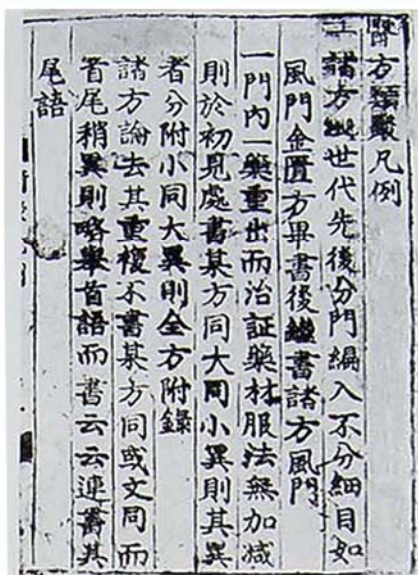 醫方類聚凡例
一諸方以世代先後分門編入不分細目如
風門金匱方畢書後繼書諸方風門
一門內一藥重出而治証藥材服法無加減
則於初見處書某方同大同小異則其異
者分附小同大異則全方附錄
諸方論去其重複不書某方同或文同而
首尾稍異則略擧首語而書云云連書其
尾語